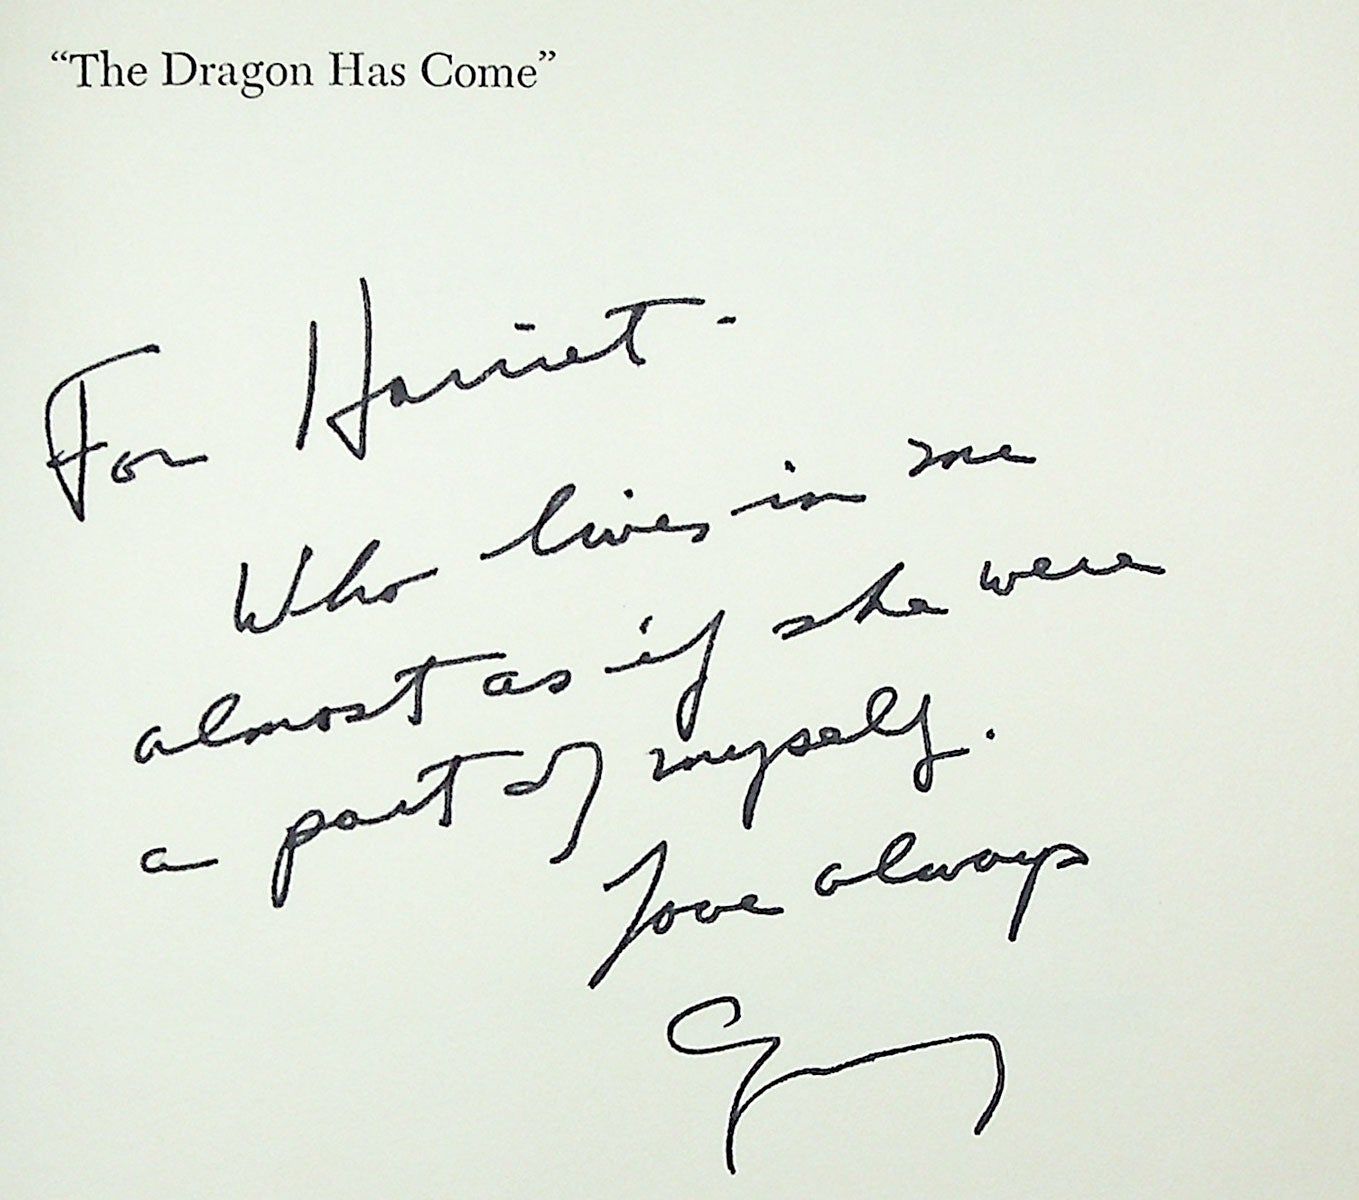 “The Dragon Has Come”
For Harriet -
Who lives in me
almost as if she were
a part of myself.
Love always